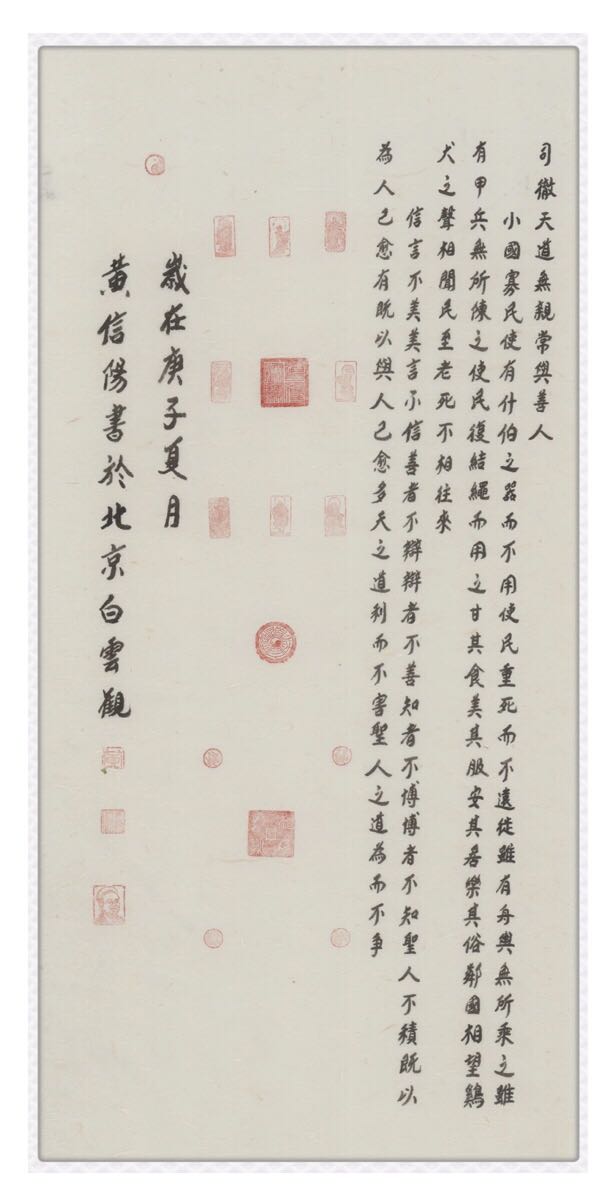 司徹天道無親常與善人
小國寡民使有什伯之器而不用使民重死而不遠徙雖有舟輿無所乘之雖
有甲兵無所陳之使民復結繩而用之甘其食美其服安其居樂其俗鄰國相望鷄
犬之聲相聞民至老死不相往來
信言不美美言不信善者不辯辯者不善知者不博博者不知聖人不積既以
為人己愈有既以與人己愈多天之道利而不害聖人之道為而不爭
歲在庚子夏月
黃信陽書於北京白雲觀